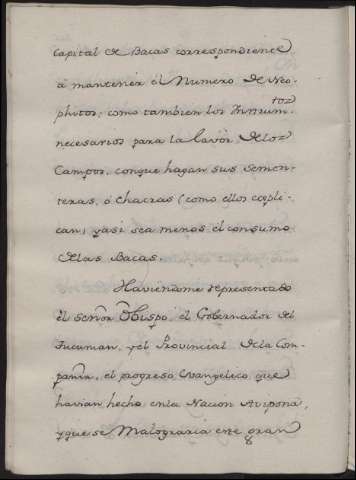 Capital de Bacas correspondiente
â mantener el Numero de Neo-
phitos; como tambien los Instrumtos
necesarios para la lavor de los
Campos, conque hagan sus Semen-
teras, ô Chacras (como ellos expli-
can) yasi sea menos el consumo
de las Bacas
Haviendome representado
el señor Obispo, el Governador del
Tucuman, yel Provincial de la Com-
pañia, el progreso Evangelico que
havian hecho enla Nacion Avipona,
yque se Malograria este gran